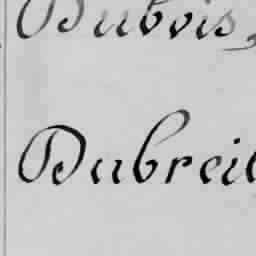 Dubois,
Dubreil